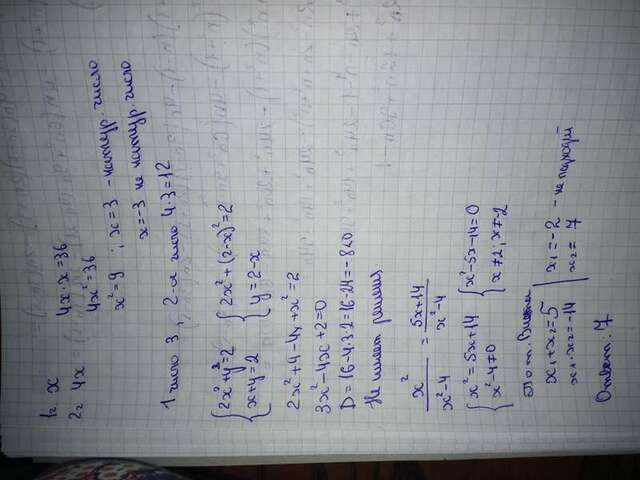 1) x
2) 4x
4x·x=36
4x²=36
x²=9 ; x=3 - натур. число
x=-3 не натур. число
1 число 3, 2-е число 4·3=12
{2x²+y²=2
{x+y=2
{2x²+(2-x)²=2
{y=2-x
2x²+4-4x+x²=2
3x²-4x+2=0
D=16-4·3·2=16-24=-8<0
Не имеет решения
x²/x²-4 = 5x+14/x²-4
{x²=5x+14
{x²-4≠0
{x²-5x-14=0
{x≠2; x≠-2
По т. Виета
x₁+x₂=5
x₁·x₂=-14
x₁=-2 - не подходит
x₂=7
Ответ: 7